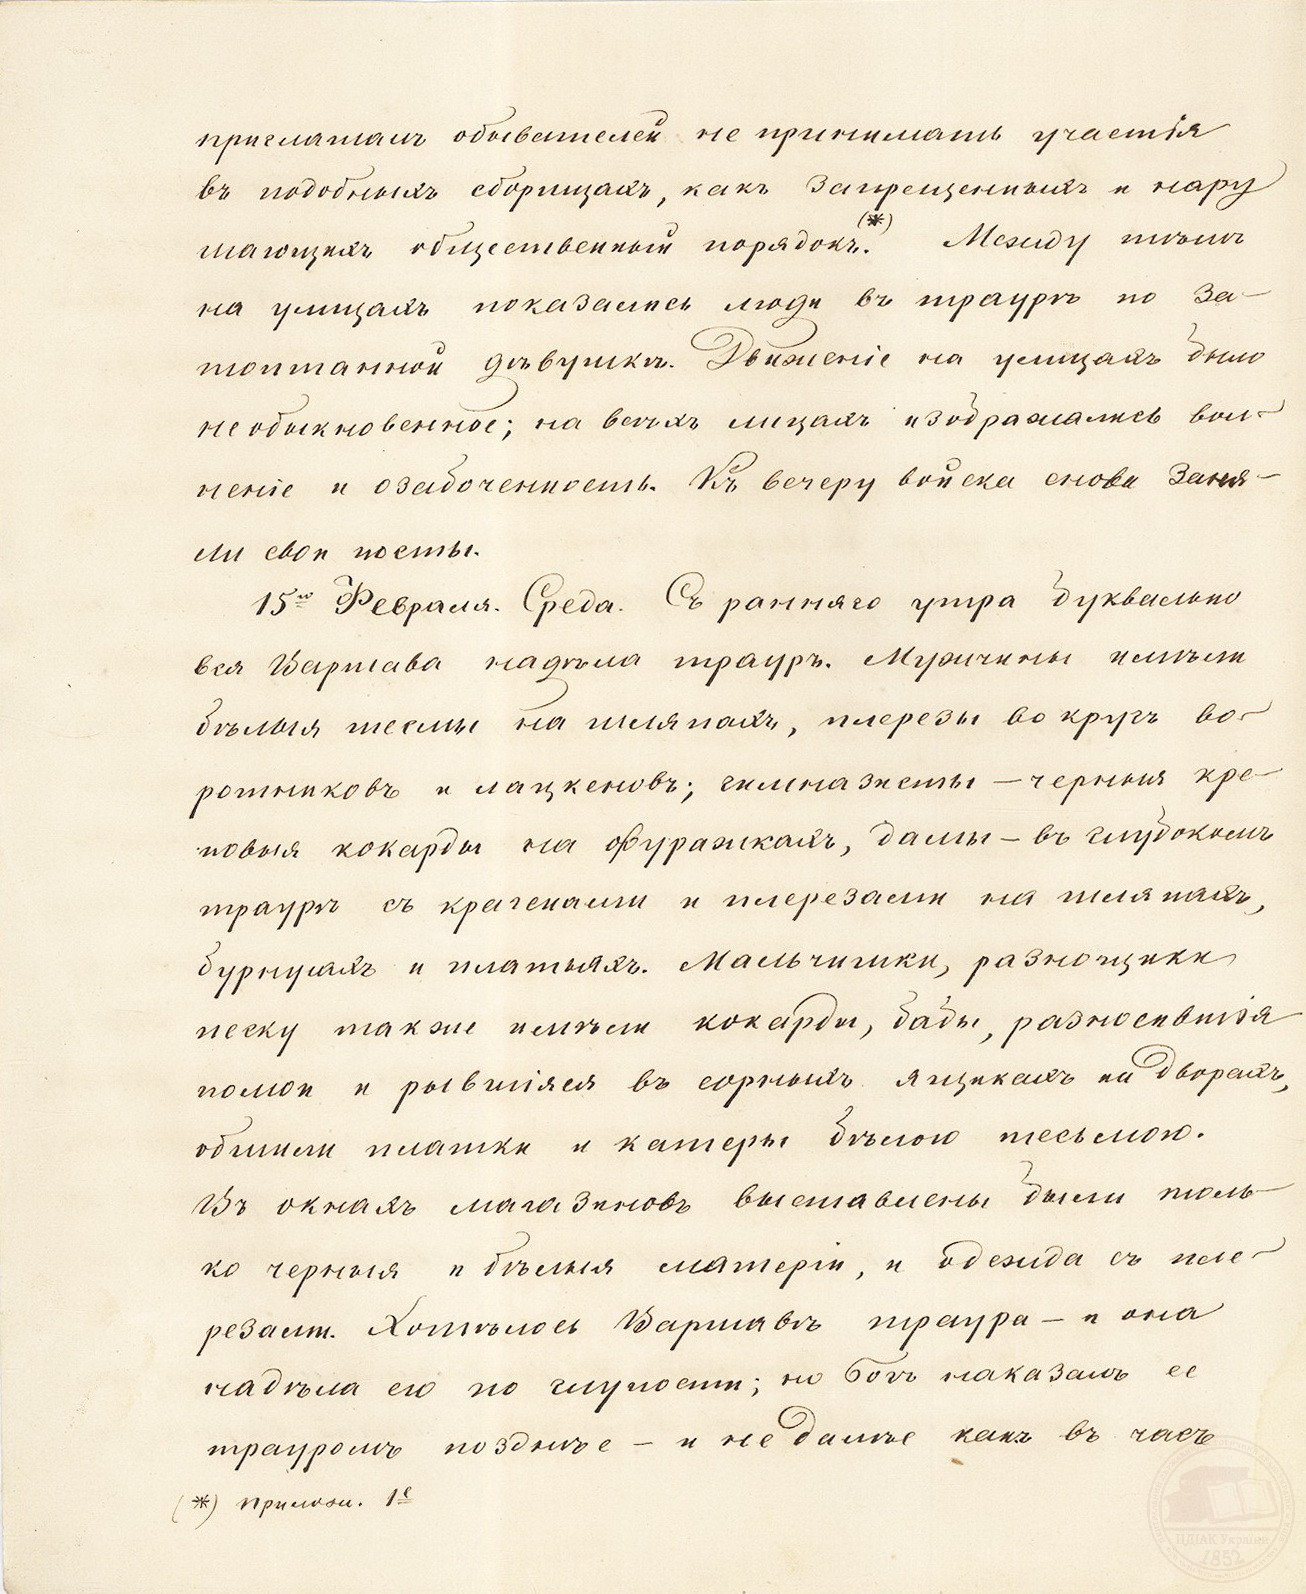 приглашалъ обывателей не принимать участія
въ подобныхъ сборищахъ, какъ запрещенныхъ и нару
шающихъ общественный порядокъ.(*) Между тѣмъ
на улицахъ показались люди въ траурѣ по за-
топтанной дѣвушкѣ. Движеніе на улицахъ было
необыкновенное; на всѣхъ лицахъ изображались вол-
неніе и озабоченность. Къ вечеру войска снова заня-
ли свои посты.
15го Февраля. Среда. Съ ранняго утра буквально
вся Варшава надѣла трауръ. Мужчины имѣли
бѣлыя тесмы на шляпахъ, плерезы вокругъ во-
ротниковъ и лацкеновъ; гимназисты – черныя кре-
повыя кокарды на фуражкахъ, дамы – въ глубокомъ
траурѣ съ крагенами и плерезами на шляпахъ,
бурнусахъ и платьяхъ. Мальчишки, разнощики
песку также имѣли кокарды, бабы, разносившія
помои и рывшіяся въ сорныхъ ящикахъ на дворахъ,
обшили платки и катеры бѣлою тесьмою.
Въ окнахъ магазиновъ выставлены были толь-
ко черныя и бѣлыя матеріи, и одежда съ пле-
резами. Хотѣлось Варшавѣ траура – и она
надѣла его по глупости; но Богъ наказалъ ее
трауромъ позднѣе – и не далѣе какъ въ часъ
(*) Прилож. 1е
ЦДІАК України
1852